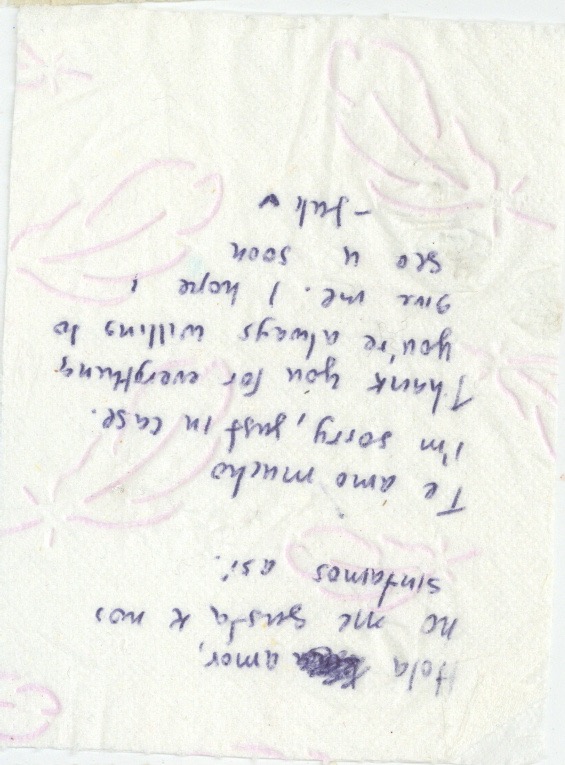 Hola amor,
no me gusta k nos
sintamos así.
Te amo mucho
i'm sorry, just in case.
Thank you for everything
you're always willing to
give me. I hope i
see u soon